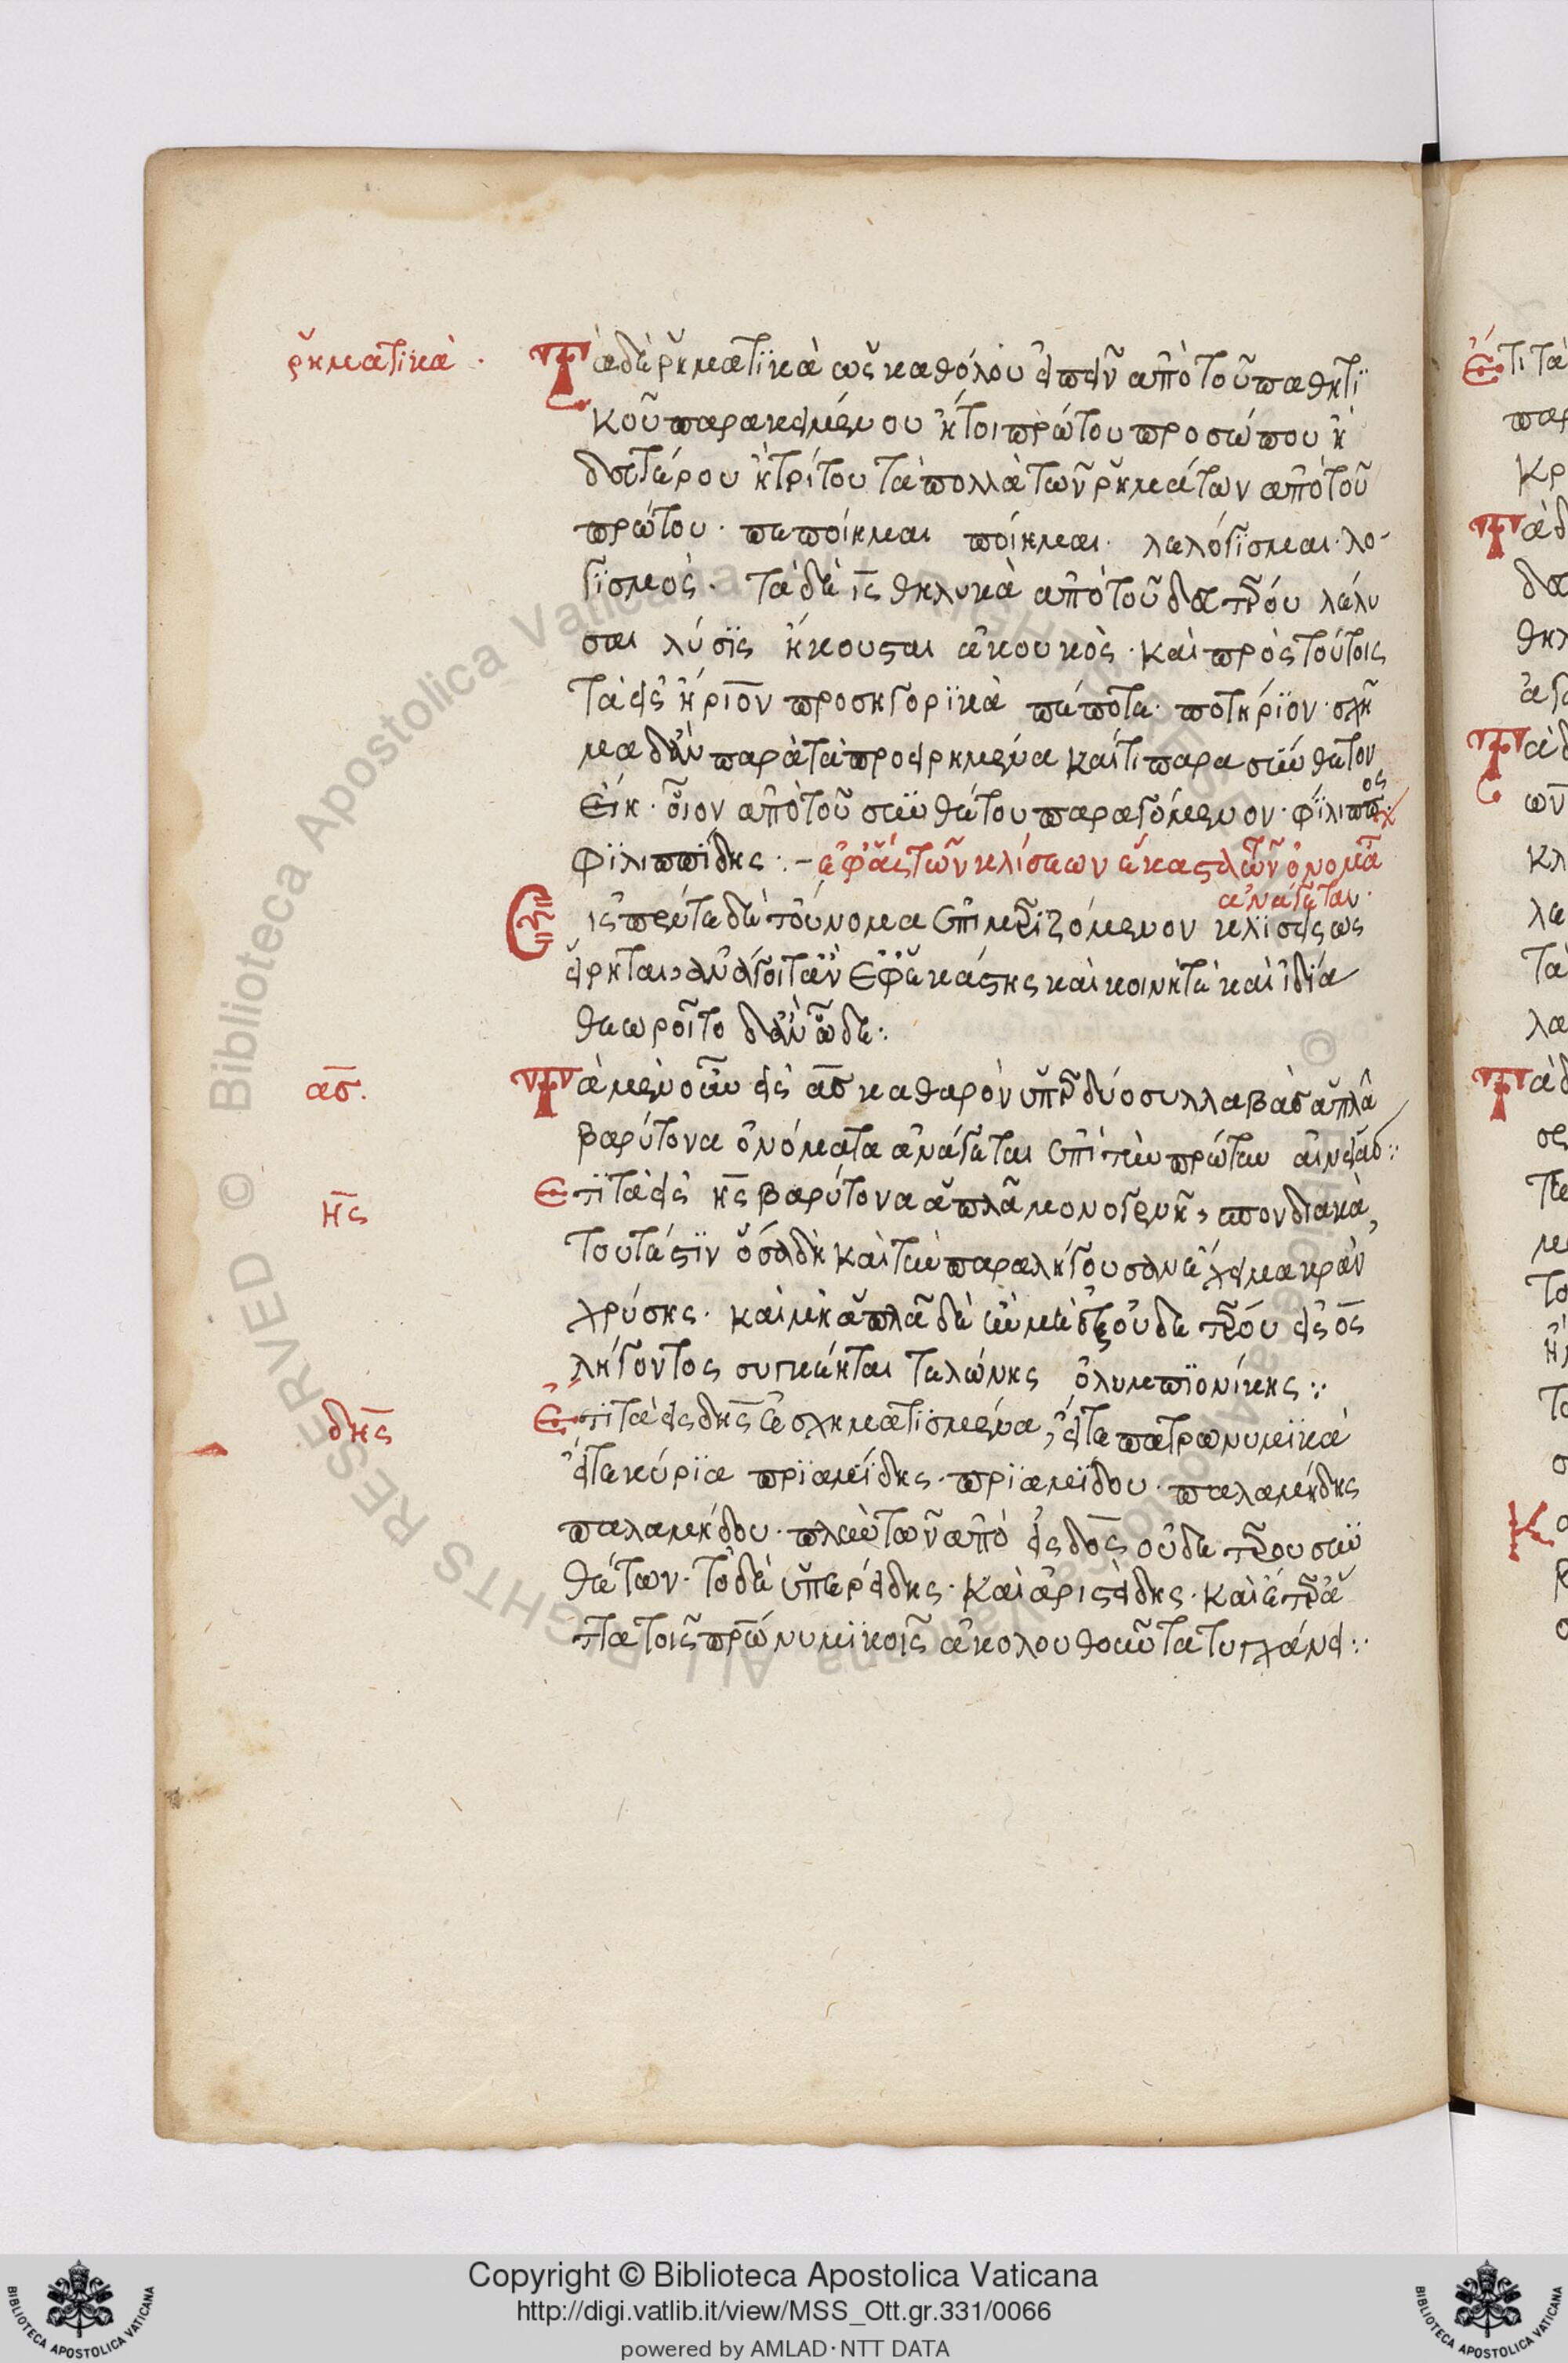 ῥηματικά ·
Τὰ δὲ ῥηματϊκὰ ὡς καθόλου εἰπεῖν ἀπὸ τοῦ παθητϊ
κοῦ παρακειμένου ἤτοι πρώτου προσώπου ἢ
δευτέρου ἢ τρίτου τὰ πολλὰ τῶν ῥημάτων ἀπὸ τοῦ
πρώτου · πεποίημαι ποίημαι · λελόγϊσμαι · λο-
γϊσμός · τὰ δὲ ις θηλυκὰ ἀπὸ τοῦ δευτέρου λέλυ
σαι λύσϊς ἤκουσαι καὶ πρὸς τούτοις
τὰ εἰς ήριον προσηγορϊκὰ πέποται · ποτήρϊον · σχῆ
μα δ' ἂν παρὰ τὰ προειρημένα καί τι παρασύνθετον
εἴη · οἷον ἀπὸ τοῦ συνθέτου παραγόμενον · φίλιππος
Φϊλιππίδης :– ἐφ' ἃς τῶν κλίσεων ἕκαστα τῶν ὀνομάτων
ἀνάγεται·
Εἰς πέντε δὲ τοὔνομα ἐπιμεριζόμενον κλίσεις ὡς
εἴρηται, ἀνάγοιτ' ἂν ἐφ' ἑκάστης καὶ κοινῇ τὲ καὶ ἰδίᾳ
θεωροῖτο δ' ἂν ὧδε :
ας.
Τὰ μὲν οὖν εἰς ας καθαρὸν ὑπὲρ δύο συλλαβὰς ἁπλᾶ
βαρύτονα ὀνόματα ἀνάγεται ἐπὶ τὴν πρώτην αἰνείας :
ης
Ἔτϊ τὰ εἰς ης βαρύτονα ἁπλᾶ μονογενῆ, σπονδιακά,
τουτέστϊν ὅσα δὴ καὶ τὴν παραλήγουσαν ἔχει μακρὰν
χρύσης · καὶ μὴ ἁπλᾶ δὲ ἐὰν μὲ ἐξ οὐδετέρου εἰς ος
λήγοντος συγκέηται τελώνης ὀλυμπϊονίκης :
δης
Ἔτϊ τὰ εἰς δης ἐσχηματϊσμένα, εἴτε πατρωνυμϊκὰ
εἴτε κύρϊα πρϊαμίδης · πρϊαμίδου · παλαμήδης
παλαμήδου · πλὴν τῶν ἀπὸ εἰς δος οὐδετέρου συν
θέτων · τὸ δὲ ὑπερείδης · καὶ ἀριστείδης · καὶ ἕτερα
ἄττα τοῖς πατρωνυμϊκοῖς ἀκολουθοῦντα τυγχάνει :
Copyright © Biblioteca Apostolica Vaticana
http://digi.vatlib.it/view/MSS_Ott.gr.331/0066
powered by AMLAD · NTT DATA